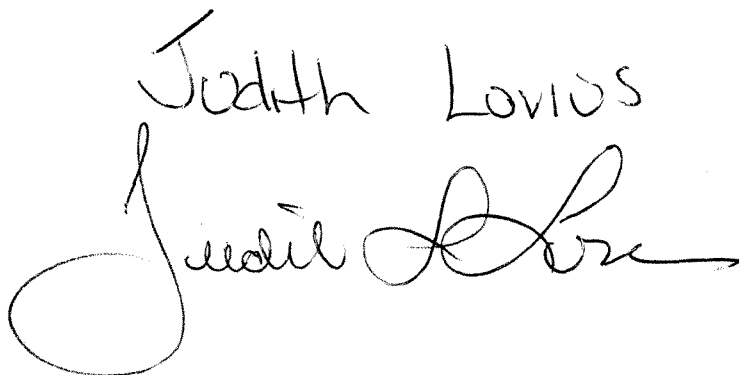 Judith Lovius
Judith L Lovius